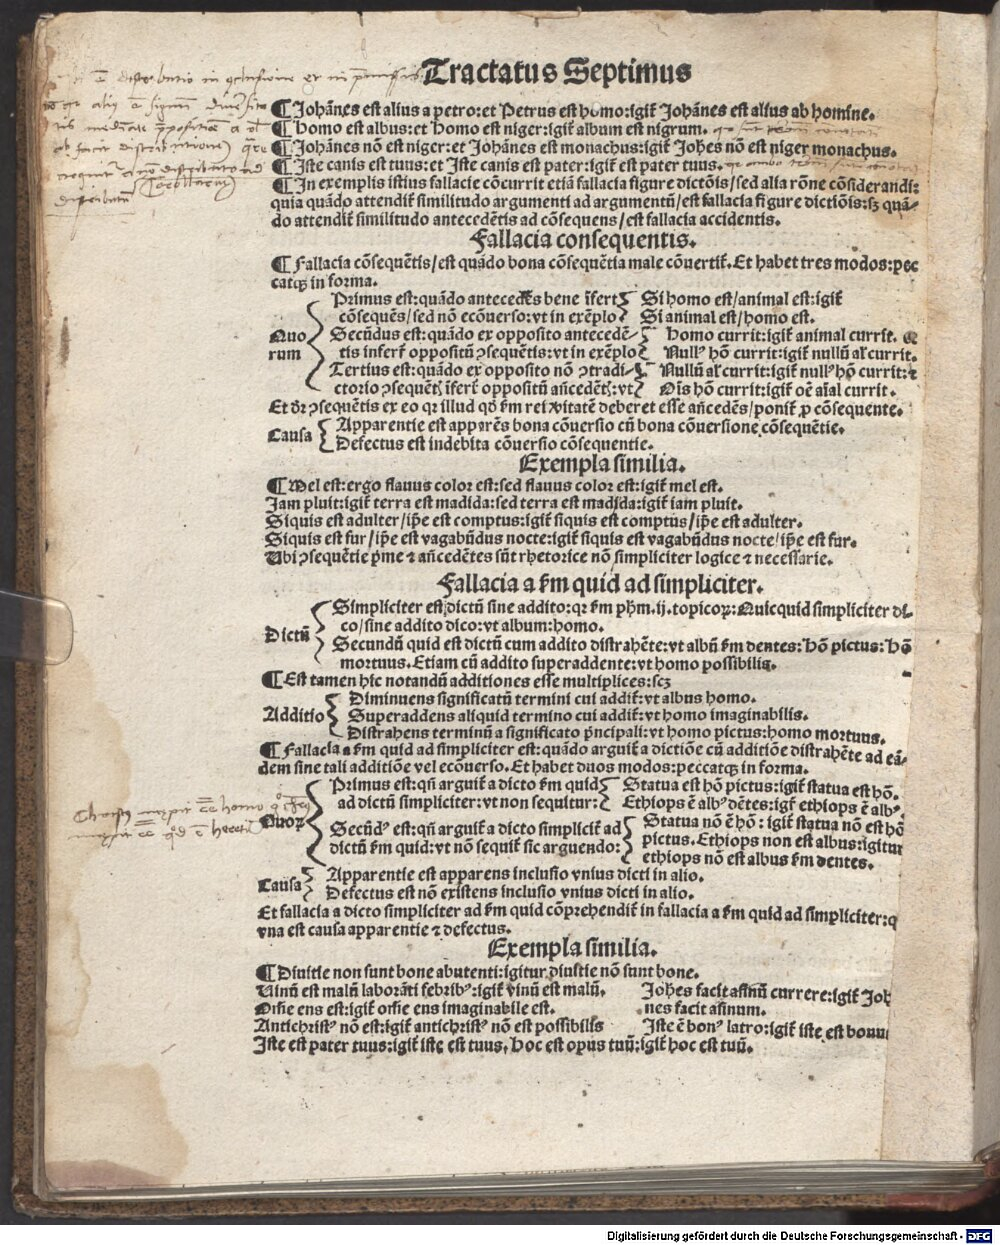 Tractatus Septimus
¶ Johãnes est alius a petro: et Petrus est homo: igiť Johãnes est alius ab homine.
¶ Homo est albus: et homo est niger: igiť album est nigrum.
¶ Johãnes nõ est niger: et Johãnes est monachus: igiť Johẽs nõ est niger monachus.
¶ Iste canis est tuus: et Iste canis est pater: igiť est pater tuus.
¶ In exemplis istius fallacie cõcurrit etiã fallacia figure dictõis/ sed alia rõne cõsiderandi:
quia quãdo attendiť similitudo argumenti ad argumentũ/ est fallacia figure dictiõis: sꝫ quã-
do attendiť similitudo antecedẽtis ad cõsequens/ est fallacia accidentis.
Fallacia consequentis.
¶ Fallacia cõsequẽtis/ est quãdo bona cõsequẽtia male cõuertiť. Et habet tres modos: pec
catqꝫ in forma.
Quo
rum
Primus est: quãdo antecedẽs bene ĩfert
cõsequẽs/ sed nõ ecõuerso: vt in exẽplo
Si homo est/ animal est: igiť
Si animal est/ homo est.
Secũdus est: quãdo ex opposito antecedẽ-
tis inferť oppositũ ꝯsequẽtis: vt in exẽplo
Homo currit: igiť animal currit.
Nullꝰ hõ currit: igiť nullũ aľ currit.
Tertius est: quãdo ex opposito nõ ꝯtradi-
ctorio ꝯsequẽt ĩferť oppositũ añcedẽt: vt
Nullũ aľ currit: igiť nullꝰ hõ currit: ⁊
Oĩs hõ currit: igiť oẽ aĩal currit.
Et dř ꝯsequẽtis ex eo qꝛ illud qď ẜm rei ṽitatẽ deberet esse añcedẽs/ poniť ꝓ cõsequente.
Causa
Apparentie est apparẽs bona cõuersio cũ bona cõuersione cõsequẽtie.
Defectus est indebita cõuersio cõsequentie.
Exempla similia.
¶ Mel est: ergo flauus color est: sed flauus color est: igiť mel est.
Jam pluit: igiť terra est madida: sed terra est madida: igiť iam pluit.
Siquis est adulter/ ip̃e est comptus: igiť siquis est comptus/ ip̃e est adulter.
Siquis est fur/ ip̃e est vagabũdus nocte: igiť siquis est vagabũdus nocte/ ip̃e est fur.
Ubi ꝯsequẽtie p̃me ⁊ añcedẽtes sũt rhetorice nõ simpliciter logice ⁊ necessarie.
Fallacia a ẜm quid ad simpliciter.
Dictũ
Simpliciter est dictũ sine addito: qꝛ ẜm pħm .ij. topicoꝝ: Quicquid simpliciter di-
co/ sine addito dico: vt album: homo.
Secundũ quid est dictũ cum addito distrahẽte: vt albũ ẜm dentes: hõ pictus: hõ
mortuus. Etiam cũ addito superaddente: vt homo possibilis.
¶ Est tamen hic notandũ additiones esse multiplices: scꝫ
Additio
Diminuens significatũ termini cui addiť: vt albus homo.
Superaddens aliquid termino cui addiť: vt homo imaginabilis.
Distrahens terminũ a significato p̃ncipali: vt homo pictus: homo mortuus.
¶ Fallacia a ẜm quid ad simpliciter est: quãdo arguiť a dictiõe cũ additiõe distrahẽte ad eã-
dem sine tali additiõe vel ecõuerso. Et habet duos modos: peccatqꝫ in forma.
Quoꝝ
Primus est: qñ arguiť a dicto ẜm quid
ad dictũ simpliciter: vt non sequitur:
Statua est hõ pictus: igiť statua est hõ.
Ethiops ẽ albꝰ dẽtes: igť ethiops ẽ albꝰ.
Secũdꝰ est: qñ arguiť a dicto simpliciť ad
dictũ ẜm quid: vt nõ sequiť sic arguendo:
Statua nõ ẽ hõ: igiť statua nõ est hõ
pictus. Ethiops non est albus: igitur
ethiops nõ est albus ẜm dentes.
Causa
Apparentie est apparens inclusio vnius dicti in alio.
Defectus est nõ existens inclusio vnius dicti in alio.
Et fallacia a dicto simpliciter ad ẜm quid cõprehendiť in fallacia a ẜm quid ad simpliciter: q
vna est causa apparentie ⁊ defectus.
Exempla similia.
¶ Diuitie non sunt bone abutenti: igitur diuitie nõ sunt bone.
Uinũ est malũ laborãti febribꝰ: igiť vinũ est malũ.
Johẽs facit asinũ currere: igiť Joh
Omne ens est: igiť omne ens imaginabile est.
nes facit asinum.
Antichristꝰ nõ est: igiť antichristꝰ nõ est possibilis
Iste ẽ bonꝰ latro: igiť iste est bonu
Iste est pater tuus: igiť iste est tuus. Hoc est opus tuũ: igiť hoc est tuũ.
Digitalisierung gefördert durch die Deutsche Forschungsgemeinschaft - DFG